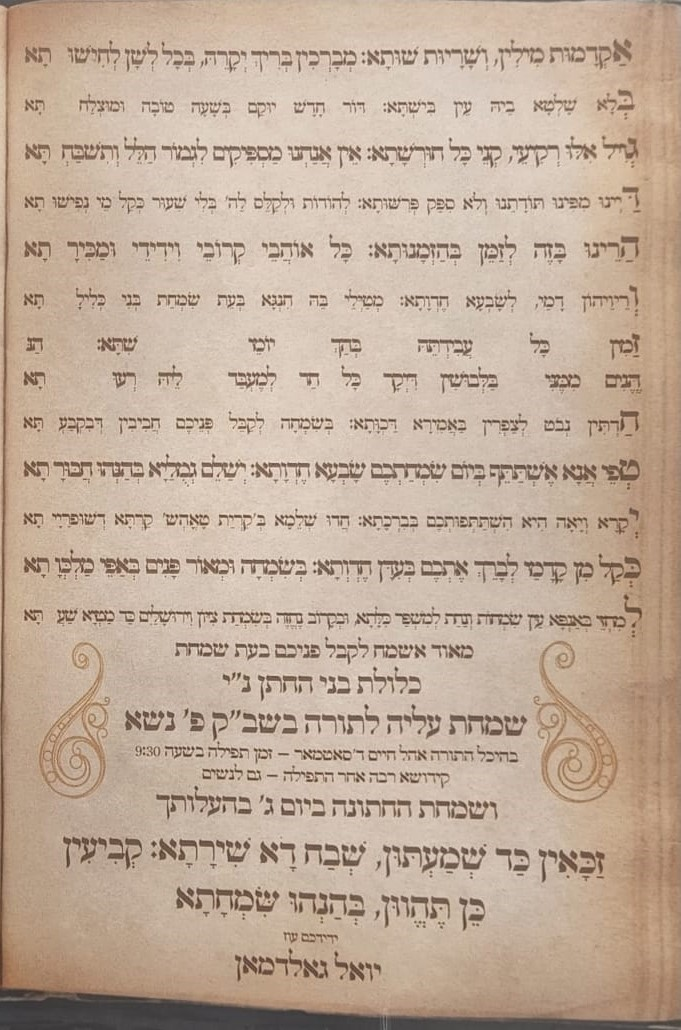 אַקְדָּמוּת מִילִּין, וְשָׁרָיוּת שׁוּתָא: מְבָרְכִין בְּרִיךְ יְקָרֵהּ, בְּכָל לְשַׁן לְחִישׁוּ תָא
בְּלָא שָׁלְטָא בֵיהּ עֵין בִּישְׁתָּא: דּוֹר חָדָשׁ יוּקַם בְּשָׁעָה טוֹבָה וּמוּצְלַח תָּא
גְּוִיל אִלּוּ רְקִיעֵי, קְנֵי כָּל חוּרְשָׁתָא: אֵין אֲנַחְנוּ מַסְפִּיקִים לִגְמוֹר הַלֵּל וְתִשְׁבַּחְ תָּא
מִפִּינוּ תּוֹדָתֵנוּ וְלֹא סִפֵּק פְּרִשׁוּתָא: לְהוֹדוֹת וּלְקַלֵּס לַה' בְּלִי שִׁעוּר כְּקָל מֵי נְפִישׁוּ תָא
הֲרֵינוּ בָּזֶה לְזַמֵּן בְּהַזְמָנוּתָא: כָּל אוֹהֲבַי קְרוֹבַי וִידִידַי וּמַכִּירַ תָּא
דָמֵי, לְשָׁבְעָא חֶדְוָתָא: מְטַיְּלֵי בֵהּ חִנְגָּא בְּעֵת שִׂמְחַת בְּנֵי כְּלִילָ תָא
זְמִין כָּל עֲבִידְתֵּהּ בְּהַךְ יוֹמֵי שַׁתָּא: הַנְ
הֲנִים מִמֶּנִּי בַּלְּבוּשִׁין דְּיָקָר כָּל חַד לְמֶעְבַּד לֵיהּ רְעוּ תָא
חֲדַתִּין נְבוֹט לְצַפְרִין בַּאֲמִירָא דַּכְוָתָא: בְּשִׂמְחָה לְקַבֵּל פְּנֵיכֶם חֲבִיבִין דְּבִקְבַעְ תָּא
טְפֵי אֲנָא אֶשְׁתַּתֵּף בְּיוֹם שִׂמְחַתְכֶם שָׁבְעָא חֶדְוָתָא: יְשַׁלֵּם גְּמָלַיָּא בְּהַנְהוּ חֲבוּרָ תָא
יְקָרָא וְיָאָה הִיא הִשְׁתַּתְּפוּתְכֶם בְּבִרְכָתָא: חֲדוּ שְׁלֵמָא בְּ'קִרְיַת טָאהַשׁ' קַרְתָּא דְשׁוּפְרַיָּ תָא
כְּקָל מִן קֳדָמַי לְבָרֵךְ אֶתְכֶם בְּעִדָּן חֶדְוָתָא: בְּשִׂמְחָה וּמְאוֹר פָּנִים בְּאַפֵּי מַלְכְּוָ תָא
מאוד אשמח לקבל פניכם בעת שמחת
כלולת בני החתן נ"י
שמחת עליה לתורה בשב"ק פ' נשא
בהיכל התורה אהל חיים ד'סאטמאר – זמן תפילה בשעה 9:30
קידושא רבה אחר התפילה – גם לנשים
ושמחת החתונה ביום ג' בהעלותך
זַכָּאִין כַּד שְׁמַעְתּוּן, שְׁבַח דָּא שִׁירָתָא: קְבִיעִין
כֵּן תֶּהֱווּן, בְּהַנְהוּ שִׂמְחָתָא
ידידכם עוז
יואל גאלדמאן